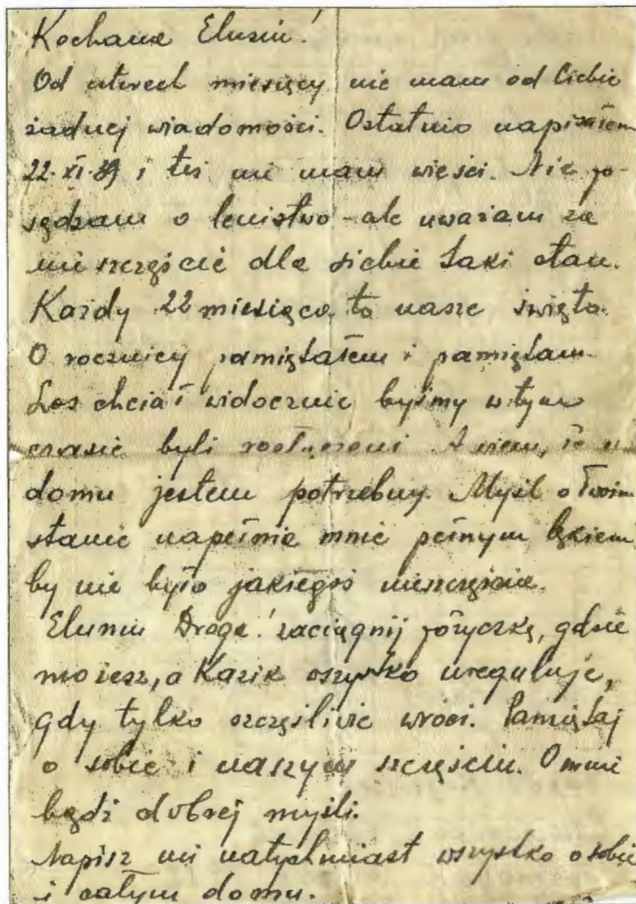 Kochana Elusiu!
Od czterech miesięcy nie mam od Ciebie
żadnej wiadomości. Ostatnio napisałem
22.XI.39 i też nie mam wieści. Nie po-
sądzam o lenistwo - ale uważam za
nieszczęście dla siebie taki stan.
Każdy 22 miesiąca to nasze święto.
O rocznicy pamiętałem i pamiętam.
Los chciał widocznie byśmy w tym
czasie byli rozłączeni. A wiem, że w
domu jestem potrzebny. Myśl o Twoim
stanie napełnia mnie pełnym lękiem
by nie było jakiegoś nieszczęścia.
Eluniu Droga! zaciągnij pożyczkę, gdzie
możesz, a Kazik wszystko ureguluje,
gdy tylko szczęśliwie wróci. Pamiętaj
o sobie i naszym szczęściu. O mnie
bądź dobrej myśli.
Napisz mi natychmiast wszystko o sobie
i całym domu.